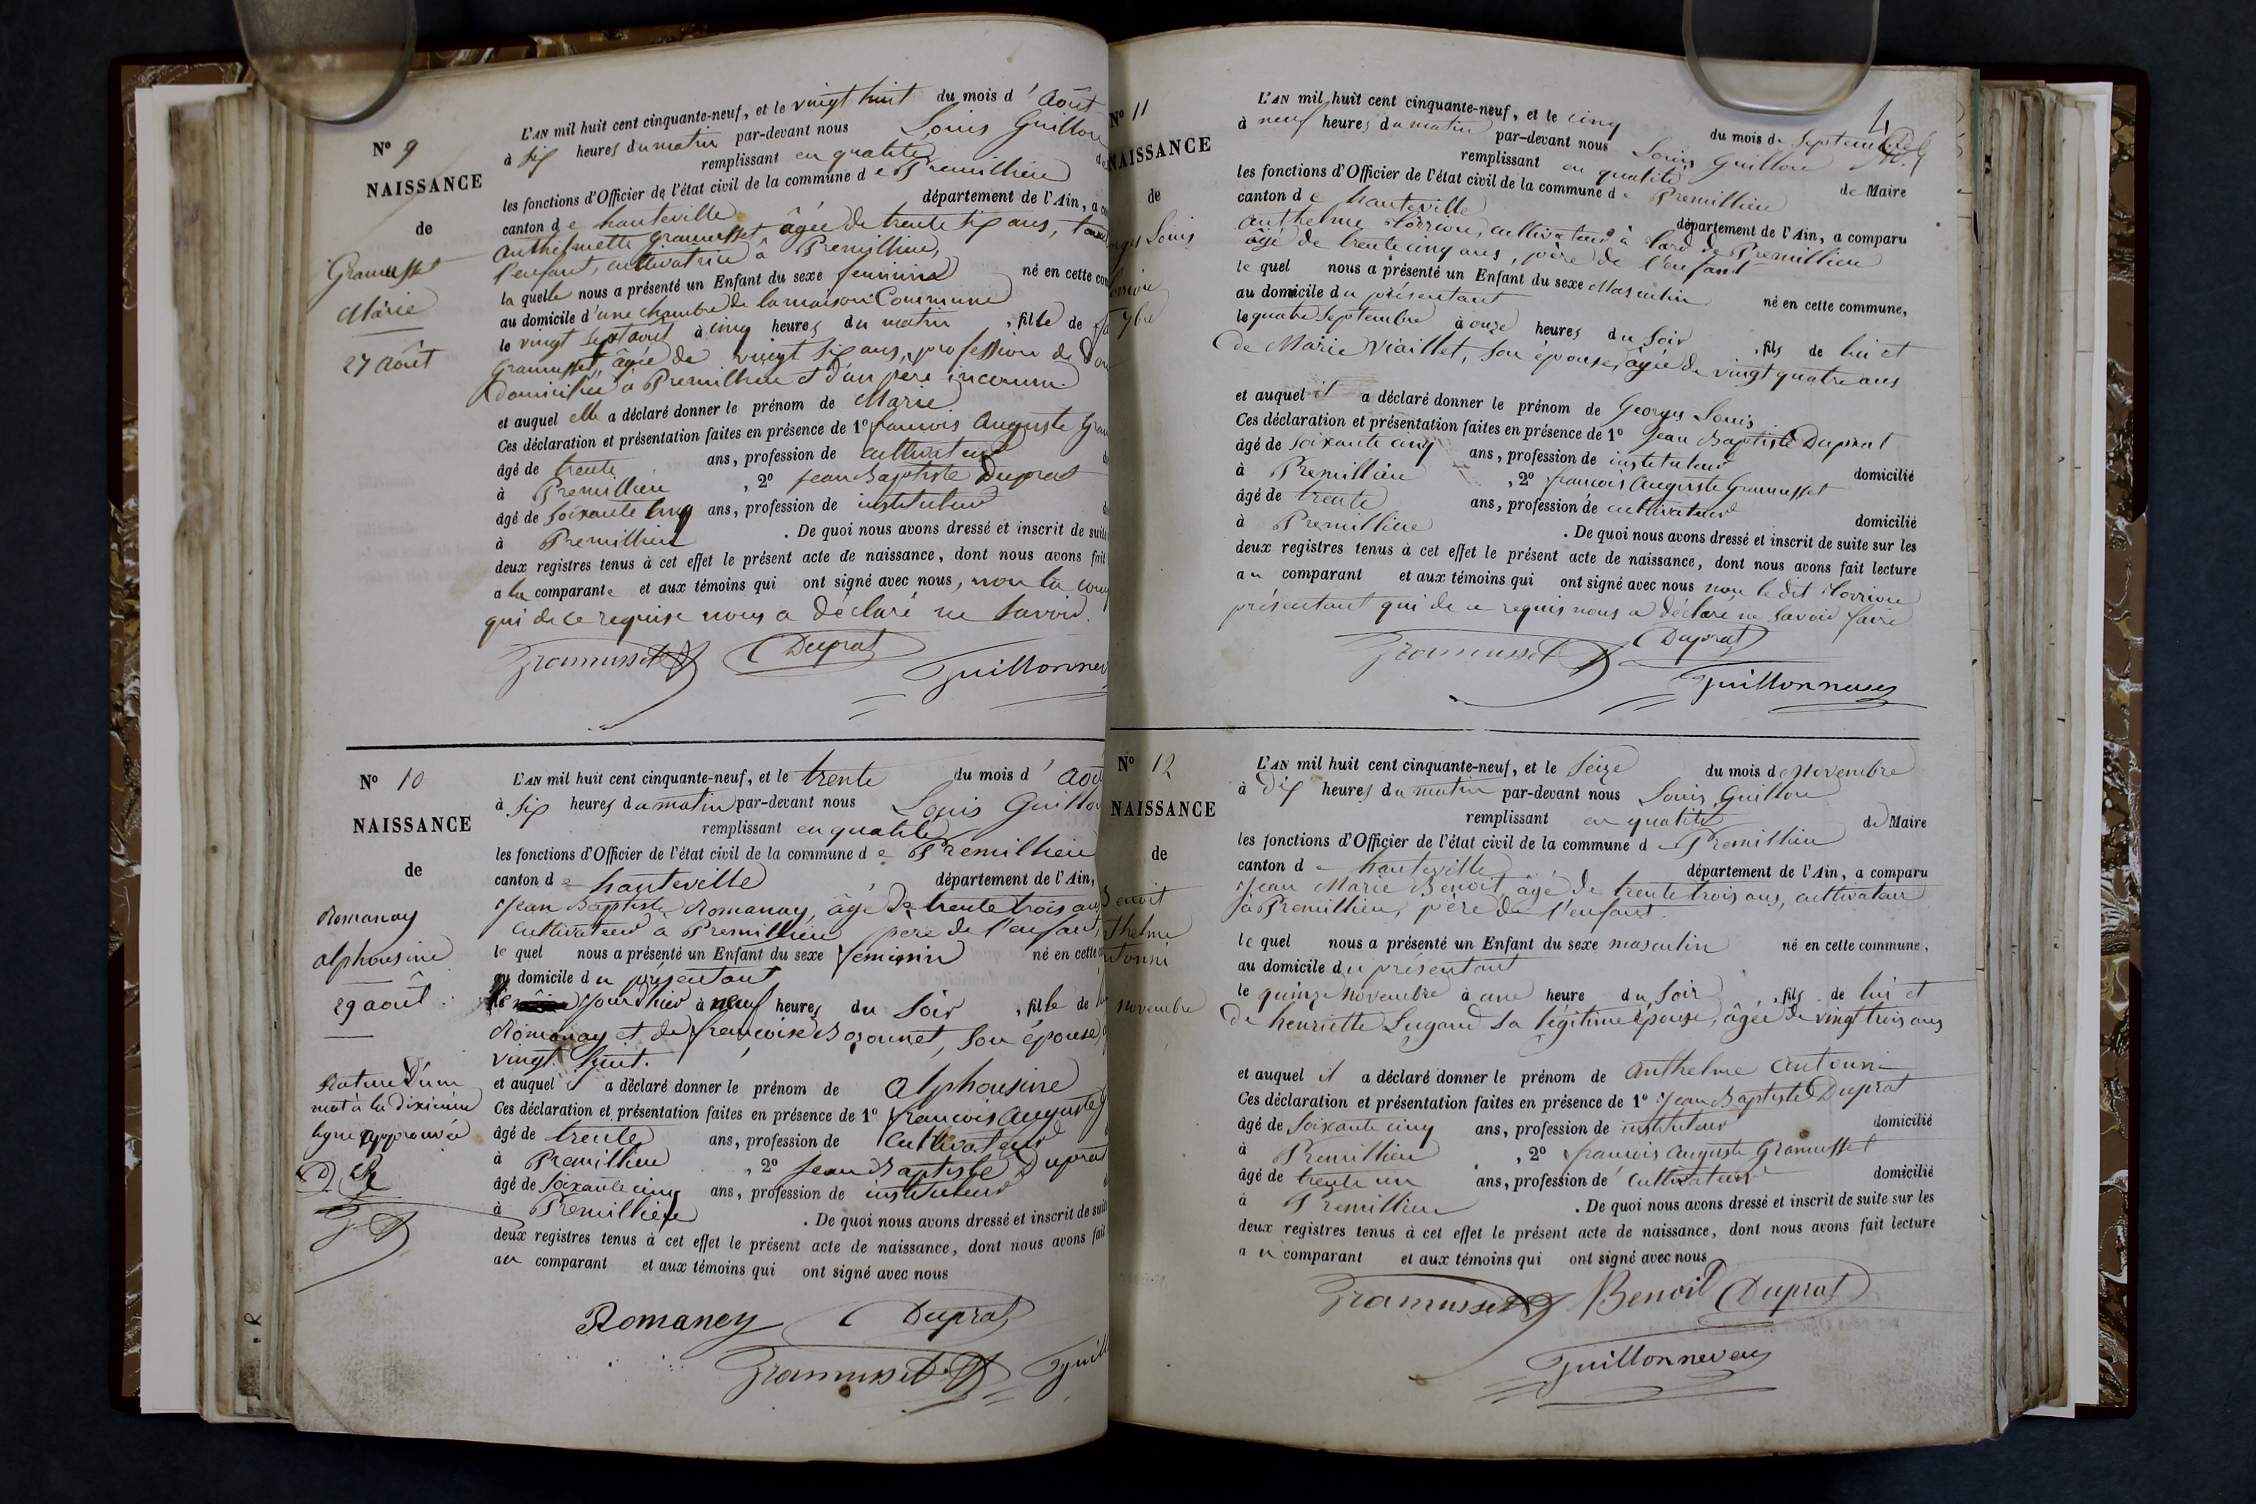 N° 9
NAISSANCE
de
Gramusset
Marie
27 août
L'AN mil huit cent cinquante-neuf, et le vingt huit du mois d'août
à six heures du matin par-devant nous Louis Guillon
remplissant en qualité
les fonctions d'Officier de l'état civil de la commune de Premillieu
canton de hauteville département de l'Ain, a
Anthelmette Gramusset âgée de trente six ans, tante
l'enfant, cultivatrice à Premillieu,
la quelle nous a présenté un Enfant du sexe féminin né en cette
au domicile d'une chambre de la maison Commune
le vingt sept août à cinq heures du matin, fille de
Gramusset, âgée de vingt six ans, profession de
domiciliée à Premillieu et d'un père inconnu.
et auquel elle a déclaré donner le prénom de Marie
Ces déclaration et présentation faites en présence de 1° françois Auguste
âgé de trente ans, profession de cultivateur
à Premillieu, 2° Jean Baptiste Duprat
âgé de soixante cinq ans, profession de instituteur
à Premillieu. De quoi nous avons dressé et inscrit de suite
deux registres tenus à cet effet le présent acte de naissance, dont nous avons fait
a la comparante et aux témoins qui ont signé avec nous, non la
qui de ce requise nous a déclaré ne savoir.
Gramusset Duprat
Guillonneve
N° 10
NAISSANCE
de
Romanay
alphonsine
29 août.
Rature d'un
mot à la dixième
ligne approuvée
D R
L'AN mil huit cent cinquante-neuf, et le trente du mois d'
à six heures du matin par-devant nous Louis Guillon
remplissant en qualité
les fonctions d'Officier de l'état civil de la commune de Premillieu
canton de hauteville département de l'Ain,
Jean Baptiste Romanay, âgé de trente trois ans
cultivateur à Premillieu père de l'enfant,
le quel nous a présenté un Enfant du sexe féminin né en cette
au domicile du présentant
jour d'hier à neuf heures du soir, fille de
Romanay et de françoise Bozonnet, son épouse
vingt huit.
et auquel il a déclaré donner le prénom de alphonsine
Ces déclaration et présentation faites en présence de 1° françois Auguste
âgé de trente ans, profession de Cultivateur
à Premillieu, 2° Jean Baptiste Duprat
âgé de soixante cinq ans, profession de instituteur
à Premillieu. De quoi nous avons dressé et inscrit de suite
deux registres tenus à cet effet le présent acte de naissance, dont nous avons fait
au comparant et aux témoins qui ont signé avec nous
Romaney Duprat
Gramusset
N° 11
NAISSANCE
de
Louis
7bre
4
L'AN mil huit cent cinquante-neuf, et le cinq du mois de Septembre
à neuf heures du matin par-devant nous Louis Guillon
remplissant en qualité de Maire
les fonctions d'Officier de l'état civil de la commune de Premillieu
canton de hauteville département de l'Ain, a comparu
Anthelme cultivateur à de Premillieu
âgé de trente cinq ans, père de l'enfant
le quel nous a présenté un Enfant du sexe Masculin né en cette commune,
au domicile du présentant
le quatre Septembre à onze heures du Soir, fils de lui et
de Marie Viaillet, son épouse, âgée de vingt quatre ans
et auquel il a déclaré donner le prénom de Georges Louis
Ces déclaration et présentation faites en présence de 1° Jean Baptiste Duprat
âgé de soixante cinq ans, profession de instituteur domicilié
à Premillieu, 2° françois Auguste Gramusset
âgé de trente ans, profession de cultivateur domicilié
à Premillieu. De quoi nous avons dressé et inscrit de suite sur les
deux registres tenus à cet effet le présent acte de naissance, dont nous avons fait lecture
au comparant et aux témoins qui ont signé avec nous non le dit
présentant qui de ce requis nous a déclaré ne savoir faire
Gramusset Duprat
Guillonneveu
N° 12
NAISSANCE
de
Benoit
thelme
Novembre
L'AN mil huit cent cinquante-neuf, et le Seize du mois de Novembre
à dix heures du matin par-devant nous Louis Guillon
remplissant en qualité de Maire
les fonctions d'Officier de l'état civil de la commune de Premillieu
canton de hauteville département de l'Ain, a comparu
Jean Marie Benoit, âgé de trente trois ans, cultivateur
à Premillieu, père de l'enfant.
le quel nous a présenté un Enfant du sexe masculin né en cette commune,
au domicile du présentant
le quinze Novembre à une heure du Soir, fils de lui et
de henriette Lugand sa légitime épouse, âgée de vingt trois ans
et auquel il a déclaré donner le prénom de Anthelme Antonin
Ces déclaration et présentation faites en présence de 1° Jean Baptiste Duprat
âgé de soixante cinq ans, profession de instituteur domicilié
à Premillieu, 2° françois Auguste Gramusset
âgé de trente un ans, profession de Cultivateur domicilié
à Premillieu. De quoi nous avons dressé et inscrit de suite sur les
deux registres tenus à cet effet le présent acte de naissance, dont nous avons fait lecture
au comparant et aux témoins qui ont signé avec nous
Gramusset Benoit Duprat
Guillonneveu